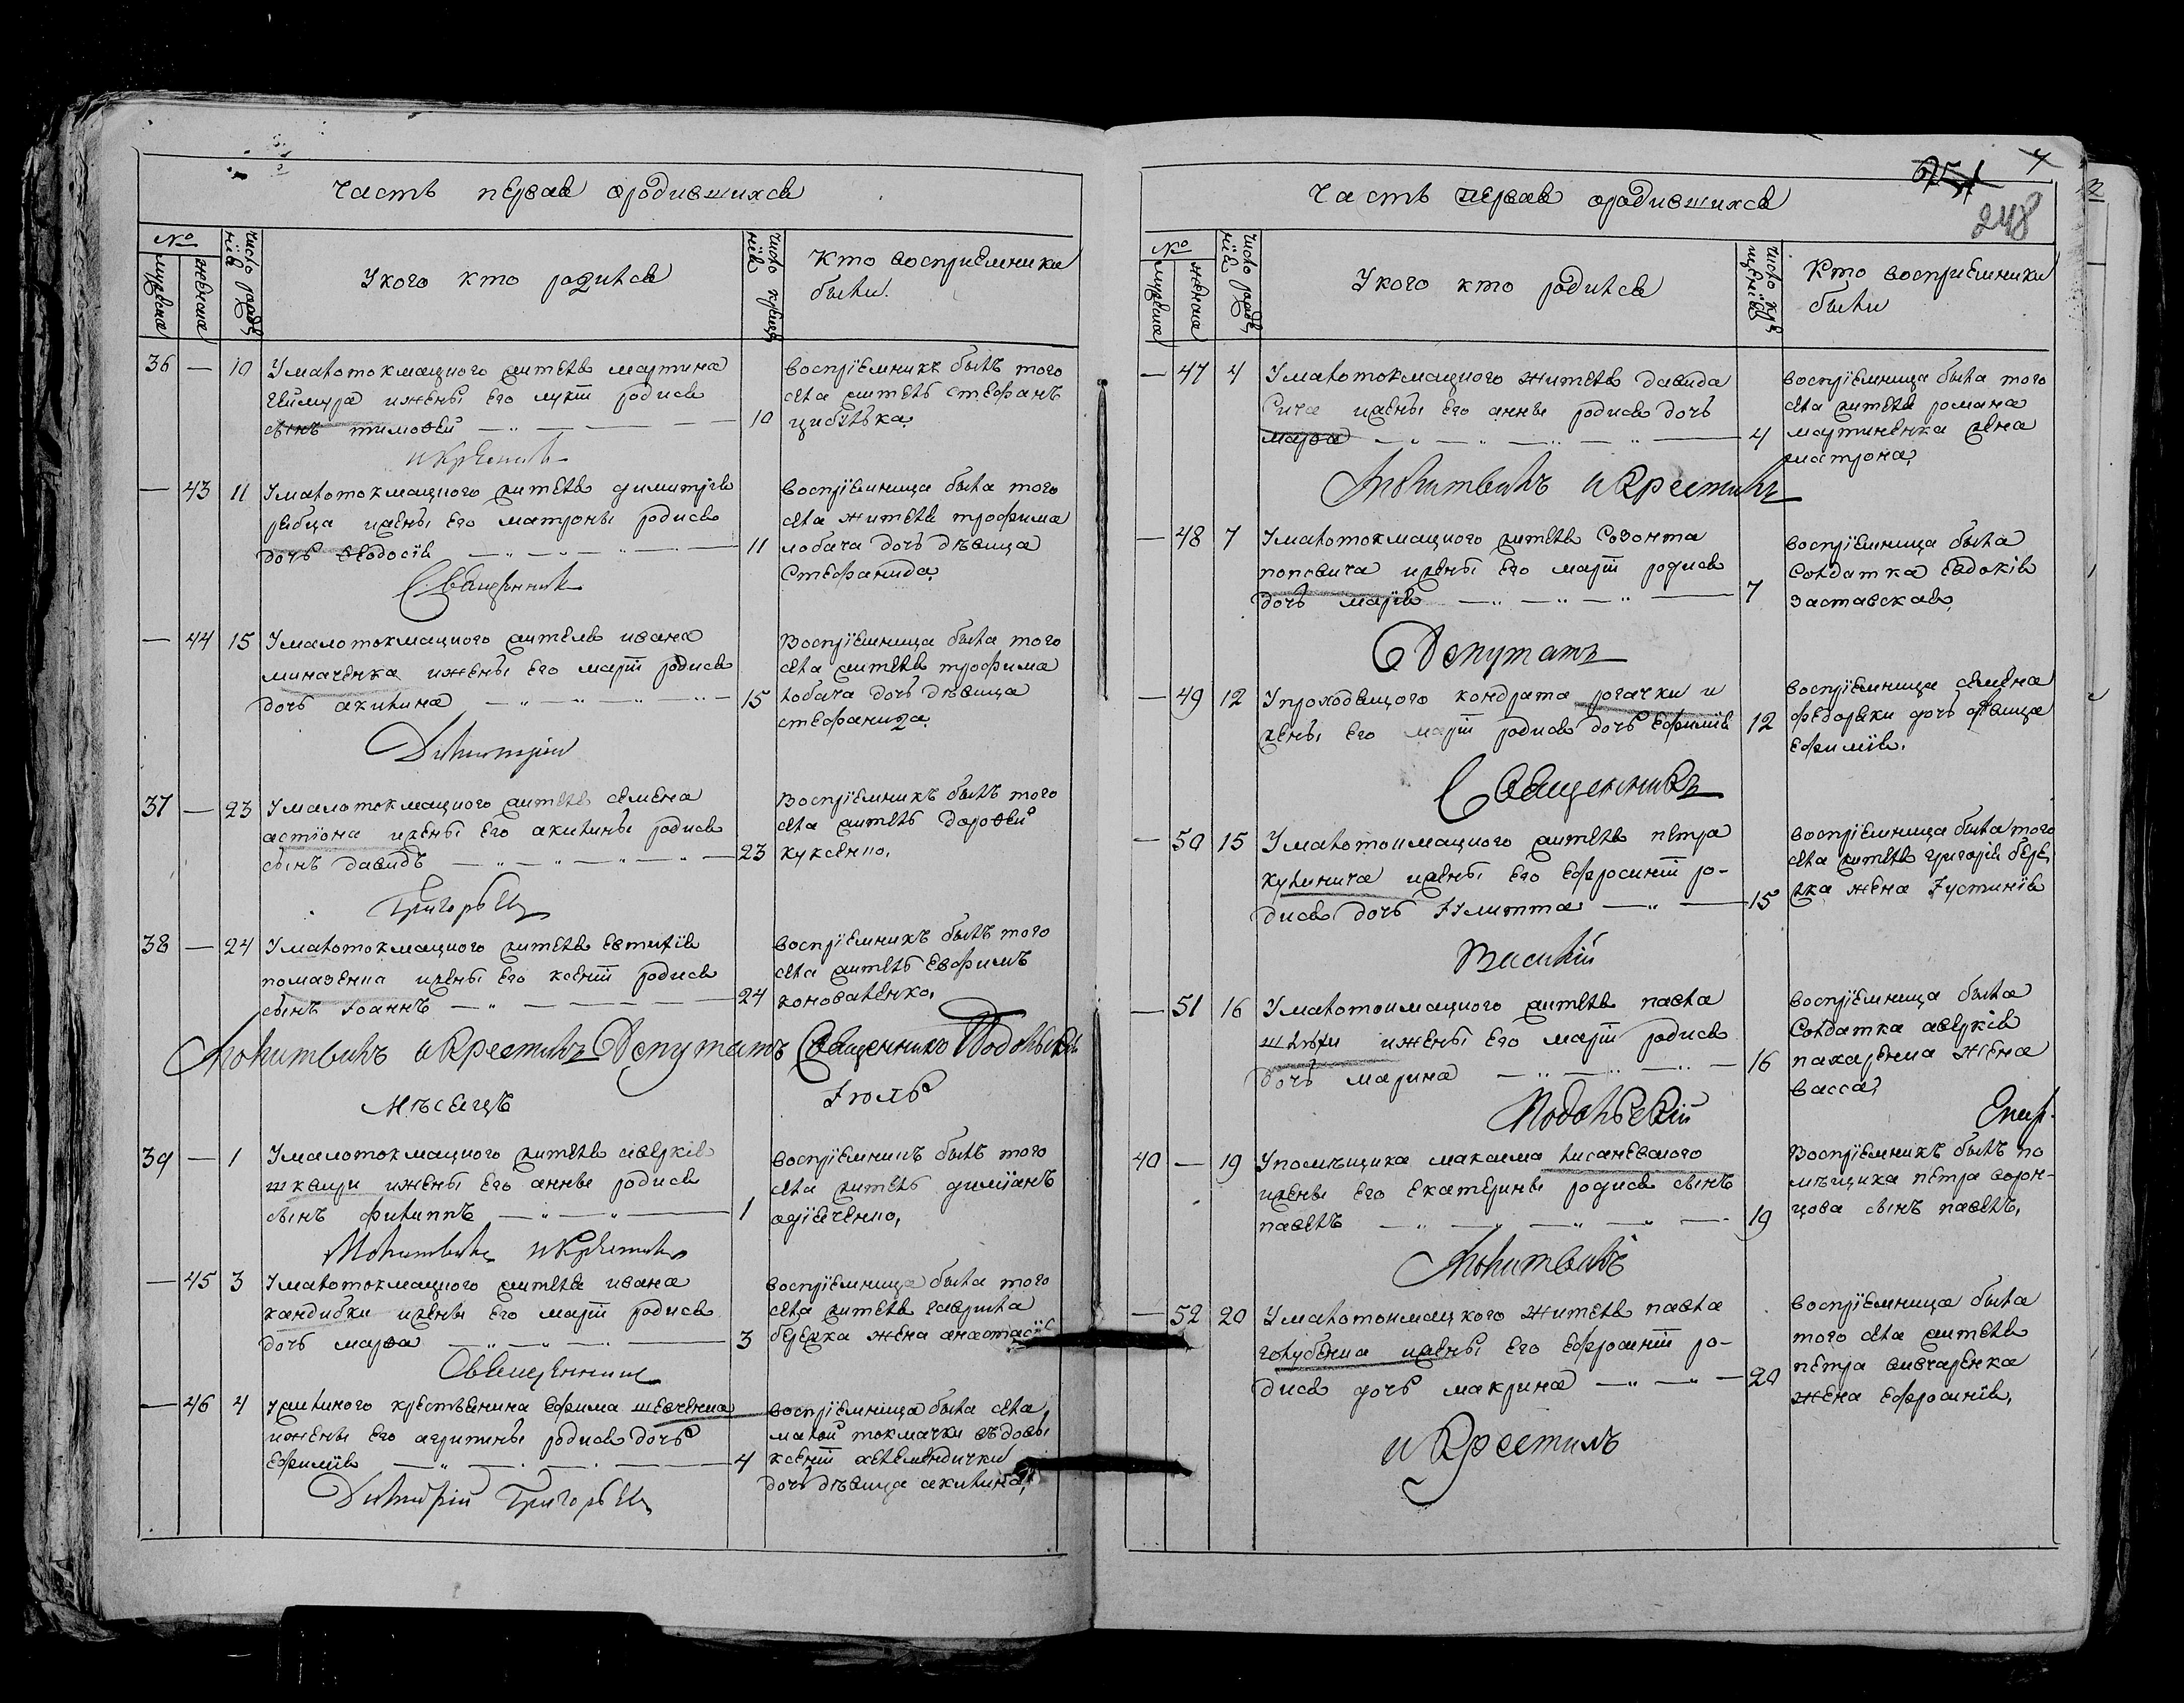 Часть первая о родившихся
№
мужеска
женска
число рожденія
У кого кто родился
число крещенія
Кто восприемники
были.
36 — 10 У малотокмацкого жителя мартина
и жены его родися
сынъ тимофей — 10
воспріемникъ былъ того
села житель стефанъ
цибулька,
и крестилъ
— 43 11 У малотокмацкого жителя димитрія
рябца и жены его матроны родися
дочь феодосія — 11
воспріемница была того
села жителя трофима
лобача дочь дѣвица
Стефанида,
Священникъ
— 44 15 У малотокмацкого жителя ивана
миначенка и жены его маріи родися
дочь акилина — 15
Воспріемница была того
села жителя трофима
лобача дочь дѣвица
стефанида,
Димитрій
37 — 23 У малотокмацкого жителя семена
астіона и жены его акилины родися
сынъ давидъ — 23
Воспріемникъ былъ того
села житель дорофей
куксенко,
Григорьевъ
38 — 24 У малотокмацкого жителя евтихія
помазенка и жены его ксеніи родися
сынъ Іоаннъ — 24
воспріемникъ былъ того
села житель евфимъ
коноваленко,
Молитвилъ и Крестилъ Депутатъ Священникъ Подольскій
Мѣсяцъ Іюль
39 — 1 У малотокмацкого жителя аверкія
шквири и жены его анны родися
сынъ филиппъ — 1
воспріемникъ былъ того
села житель диміанъ
Молитвилъ и Крестилъ
— 45 3 У малотокмацкого жителя ивана
кандибки и жены его маріи родися
дочь марфа — 3
воспріемница была того
села жителя гаврила
бережка жена анастасія
Священникъ
— 46 4 крестьянина ефима шевченка
и жены его агрипины родися дочь
ефимія — 4
воспріемница была села
малой токмачки вѣдовы
ксеніи
дочь дѣвица акилина,
Димитрій Григорьевъ
4
251
248
Часть первая о родившихся
№
мужеска
женска
число рожденія
У кого кто родился
число крещенія
Кто восприемники
были
— 47 4 У малотокмацкого жителя давида
Сича и жены его анны родися дочь
марфа — 4
воспріемница была того
села жителя романа
мартиненка жена
матрона,
Молитвилъ и Крестилъ
— 48 7 У малотокмацкого жителя Созонта
поповича и жены его маріи родися
дочь марія — 7
воспріемница была
Солдатка Евдокія
Заставская,
Депутатъ
— 49 12 У проходящого кондрата рогачки и
жены его маріи родися дочь ефимія 12
воспріемница семена
федоряки дочь дѣвица
ефимія.
Священникъ
— 50 15 У малотокмацкого жителя петра
кулинича и жены его ефросиніи ро-
дися дочь Іулитта — 15
воспріемница была того
села жителя григорія бере-
жка жена Іустинія
Василій
— 51 16 У малотокмацкого жителя павла
и жены его маріи родися
дочь марина — 16
воспріемница была
Солдатка аверкія
захаренка жена
васса,
Подольскій
40 — 19 У помѣщика максима лисаневского
и жены его екатерины родися сынъ
павелъ — 19
Воспріемникъ былъ по
мѣщика петра ворон-
цова сынъ павелъ,
Молитвилъ
— 52 20 У малотокмацкого жителя павла
голубенка и жены его ефросиніи ро-
дися дочь макрина — 20
воспріемница была
того села жителя
петра вивчаренка
жена ефросинія,
и Крестилъ